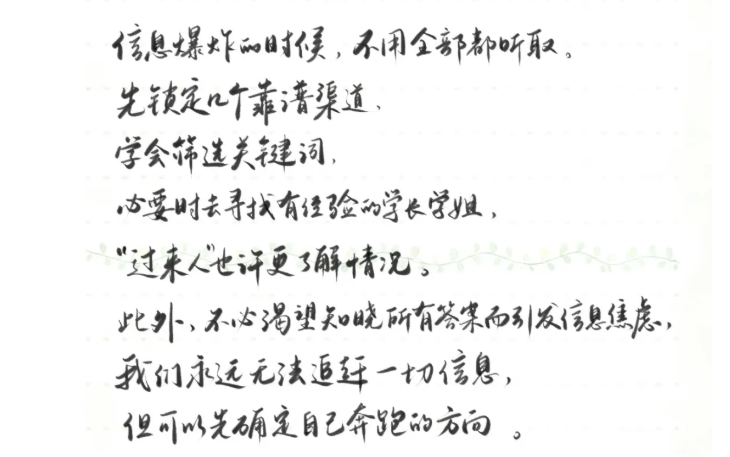 信息爆炸的时候，不用全部都听取。
先锁定几个靠谱渠道，
学会筛选关键词，
必要时去寻找有经验的学长学姐，
“过来人”也许更了解情况。
此外，不必渴望知晓所有答案而引发信息焦虑，
我们永远无法追赶一切信息，
但可以先确定自己奔跑的方向。